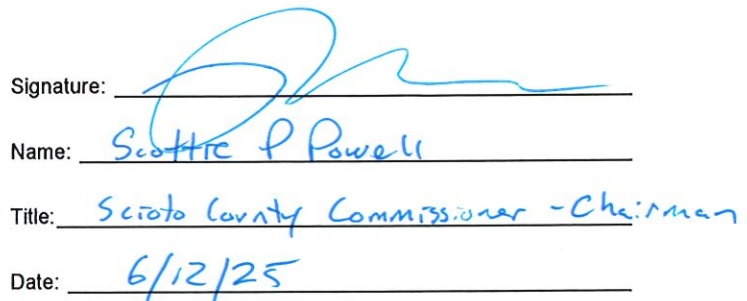 Signature:
Name: Scottie P Powell
Title: Scioto County Commissioner - Chairman
Date: 6/12/25